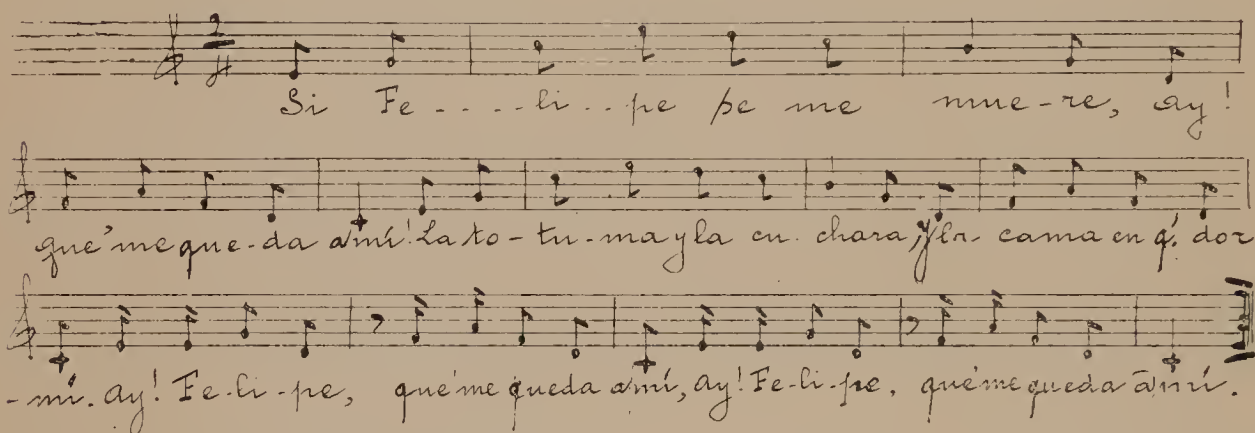 Si Fe-....-li..-pe se me mue-re, ay!
qué me que-da a mí! La to-tu-ma y la cu-chara, y la cama en q.' dor
-mí. ay! Fe-li-pe, qué me queda a mí, ay! Fe-li-pe, qué me queda a mí.